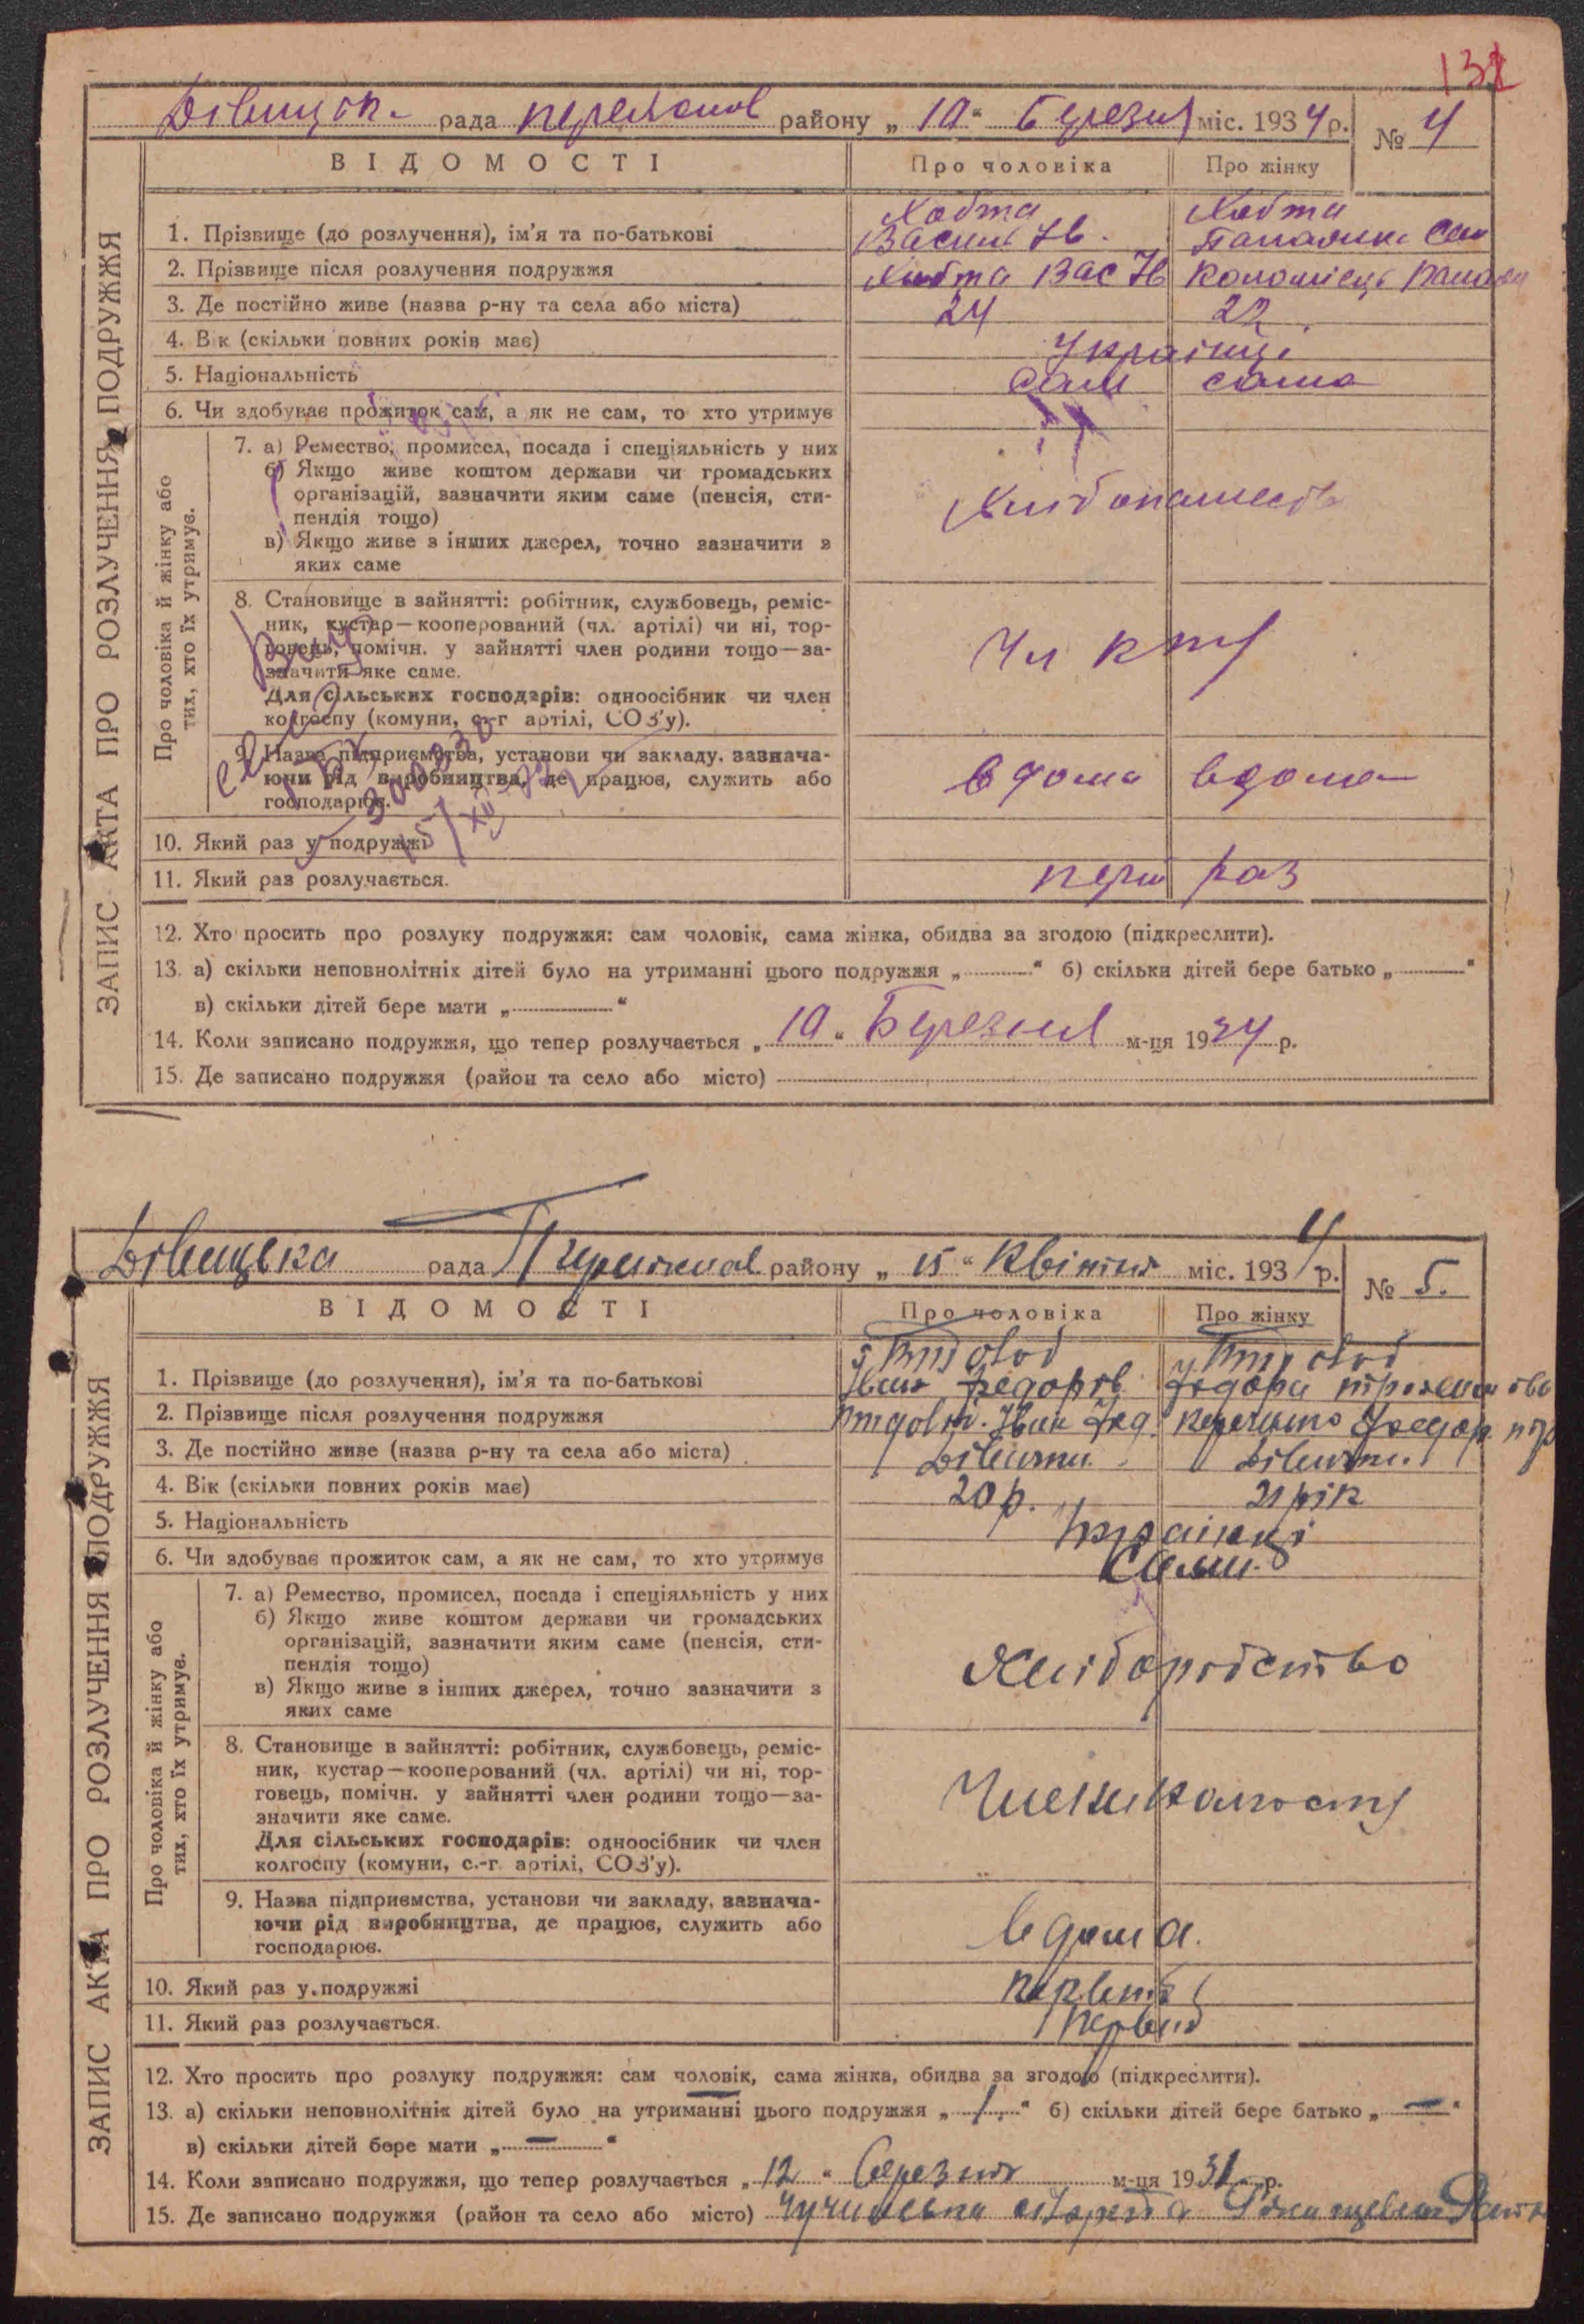 132
Дівицьк. рада Переяслов району „ 10 “ Березня міс. 1934 р. № 4
ВІДОМОСТІ Про чоловіка Про жінку
ЗАПИС АКТА ПРО РОЗЛУЧЕННЯ ПОДРУЖЖЯ
1. Прізвище (до розлучення), ім'я та по-батькові Хобта Василь Ів. Хобта
2. Прізвище після розлучення подружжя Хобта Вас Ів Коломієць
3. Де постійно живе (назва р-ну та села або міста) 24 22
4. Вік (скільки повних років має) Українці
5. Національність сам сама
6. Чи здобуває прожиток сам, а як не сам, то хто утримує
Про чоловіка й жінку або тих, хто їх утримує.
7. а) Ремество, промисел, посада і спеціяльність у них
б) Якщо живе коштом держави чи громадських
організацій, зазначити яким саме (пенсія, сти-
пендія тощо)
в) Якщо живе з інших джерел, точно зазначити з
яких саме
8. Становище в зайнятті: робітник, службовець, реміс-
ник, кустар—кооперований (чл. артілі) чи ні, тор-
говець, помічн. у зайнятті член родини тощо—за-
значити яке саме.
Для сільських господарів: одноосібник чи член
колгоспу (комуни, с.-г. артілі, СОЗ'у).
Чл
9. Назва підприємтва, установи чи закладу, зазнача-
ючи рід виробництва, де працює, служить або
господарює.
вдома вдома
10. Який раз у подружжі
11. Який раз розлучається. перш раз
12. Хто просить про розлуку подружжя: сам чоловік, сама жінка, обидва за згодою (підкреслити).
13. а) скільки неповнолітніх дітей було на утриманні цього подружжя „ “ б) скільки дітей бере батько „ “
в) скільки дітей бере мати „ “
14. Коли записано подружжя, що тепер розлучається „ 10 “ Березня м-ця 1934 р.
15. Де записано подружжя (район та село або місто)
Дівицька рада Переяслов району „ 15 “ Квітня міс. 1934 р. № 5.
ВІДОМОСТІ Про чоловіка Про жінку
ЗАПИС АКТА ПРО РОЗЛУЧЕННЯ ПОДРУЖЖЯ
1. Прізвище (до розлучення), ім'я та по-батькові Іван Федоров
2. Прізвище після розлучення подружжя Іван Фед.
3. Де постійно живе (назва р-ну та села або міста) Дівички Дівички
4. Вік (скільки повних років має) 20 р. 21 рік
5. Національність Українці
6. Чи здобуває прожиток сам, а як не сам, то хто утримує Сами
Про чоловіка й жінку або тих, хто їх утримує.
7. а) Ремество, промисел, посада і спеціяльність у них
б) Якщо живе коштом держави чи громадських
організацій, зазначити яким саме (пенсія, сти-
пендія тощо)
в) Якщо живе з інших джерел, точно зазначити з
яких саме
Хліборобство
8. Становище в зайнятті: робітник, службовець, реміс-
ник, кустар—кооперований (чл. артілі) чи ні, тор-
говець, помічн. у зайнятті член родини тощо—за-
значити яке саме.
Для сільських господарів: одноосібник чи член
колгоспу (комуни, с.-г. артілі, СОЗ'у).
Члени колгоспу
9. Назва підприємства, установи чи закладу, зазнача-
ючи рід виробництва, де працює, служить або
господарює.
вдома.
10. Який раз у подружжі
11. Який раз розлучається.
12. Хто просить про розлуку подружжя: сам чоловік, сама жінка, обидва за згодою (підкреслити).
13. а) скільки неповнолітніх дітей було на утриманні цього подружжя „ 1 “ б) скільки дітей бере батько „ — “
в) скільки дітей бере мати „ — “
14. Коли записано подружжя, що тепер розлучається „ 12 “ березня м-ця 1931 р.
15. Де записано подружжя (район та село або місто)